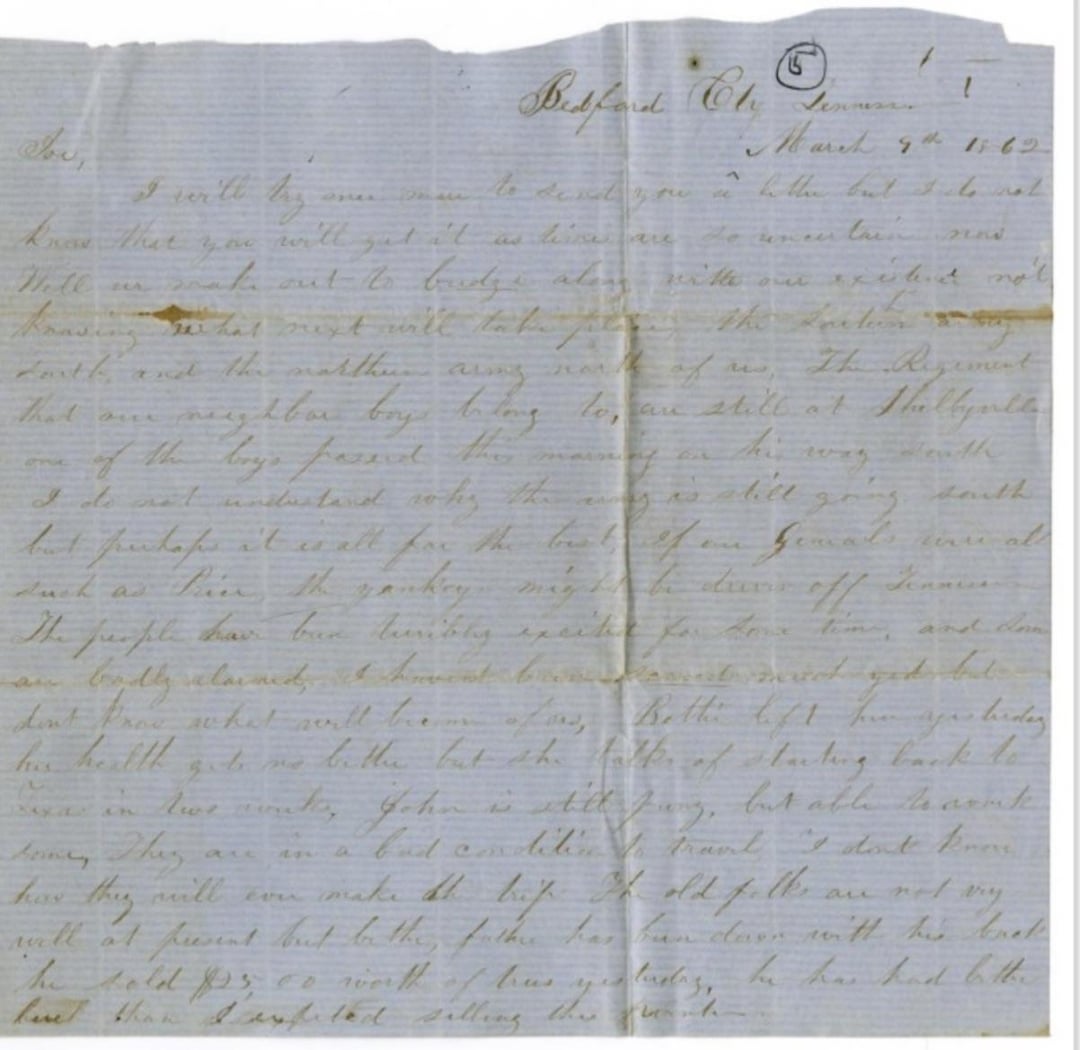 15
Bedford Cty Tennessee
March 9th 1862
Joe,
I will try once more to send you a letter but I do not
know that you will get it as times are so uncertain now
Well we make out to budge along with our existence not
knowing what next will take place, the Southern army
South, and the northern army north of us, The Regiment
that our neighbor boys belong to, are still at Shelbyville
one of the boys passed this morning on his way south
I do not understand why the army is still going south
but perhaps it is all for the best, If our Generals were all
such as Price, the yankeys might be driven off Tennessee
The people have been terribly excited for some time, and some
are badly alarmed, I havent been scared much yet but
dont know what will become of us, Bettie left here yesterday
her health gets no better but she talks of starting back to
Texas in two weeks, John is still puny, but able to work
some, They are in a bad condition to travel I dont know
how they will ever make the trip The old folks are not very
well at present but better, father has been down with his back
he sold $25.00 worth of trees yesterday, he has had better
luck than I expected selling this